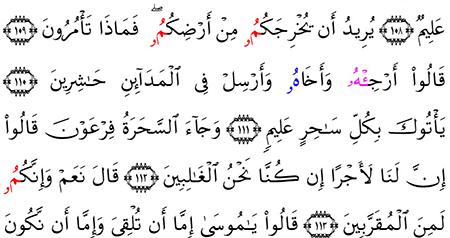 عَلِيمٌ ﴿١٠٨﴾ يُرِيدُ أَن يُخْرِجَكُمُۥ مِنْ أَرْضِكُمُۥۖ فَمَاذَا تَأْمُرُونَ ﴿١٠٩﴾
قَالُوا۟ أَرْجِئْهُۥ وَأَخَاهُۥ وَأَرْسِلْ فِى ٱلْمَدَآئِنِ حَـٰشِرِينَ ﴿١١٠﴾
يَأْتُوكَ بِكُلِّ سَـٰحِرٍ عَلِيمٍ ﴿١١١﴾ وَجَآءَ ٱلسَّحَرَةُ فِرْعَوْنَ قَالُوا۟
إِنَّ لَنَا لَأَجْرًا إِن كُنَّا نَحْنُ ٱلْغَـٰلِبِينَ ﴿١١٢﴾ قَالَ نَعَمْ وَإِنَّكُمُۥ
لَمِنَ ٱلْمُقَرَّبِينَ ﴿١١٣﴾ قَالُوا۟ يَـٰمُوسَىٰ إِمَّا أَن تُلْقِىَ وَإِمَّا أَن نَّكُونَ